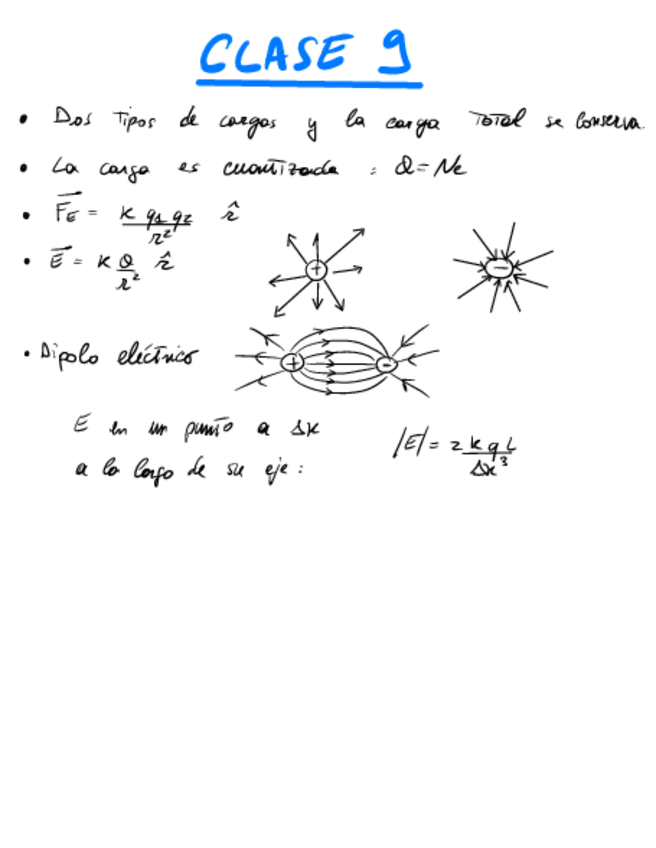 CLASE 9
• Dos tipos de cargas y la carga total se conserva.
• La carga es cuantizada : Q = Ne
• F⃗E = k q1 q2 / r² r̂
• E⃗ = k Q / r² r̂
+
−
• Dipolo eléctrico
+
-
E en un punto a Δx
a lo largo de su eje :
|E| = 2 k q L / Δx³